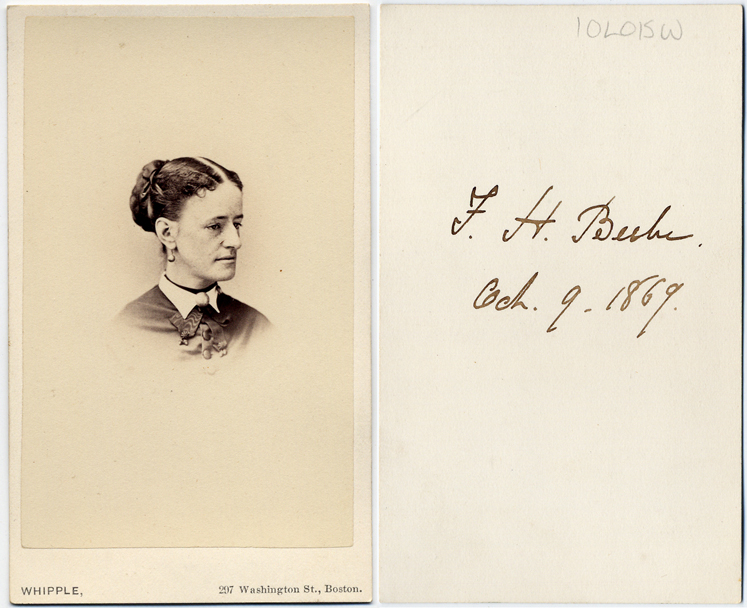 WHIPPLE,
297 Washington St., Boston.
10LO15W
F. H. Beebe.
Oct. 9 - 1869.